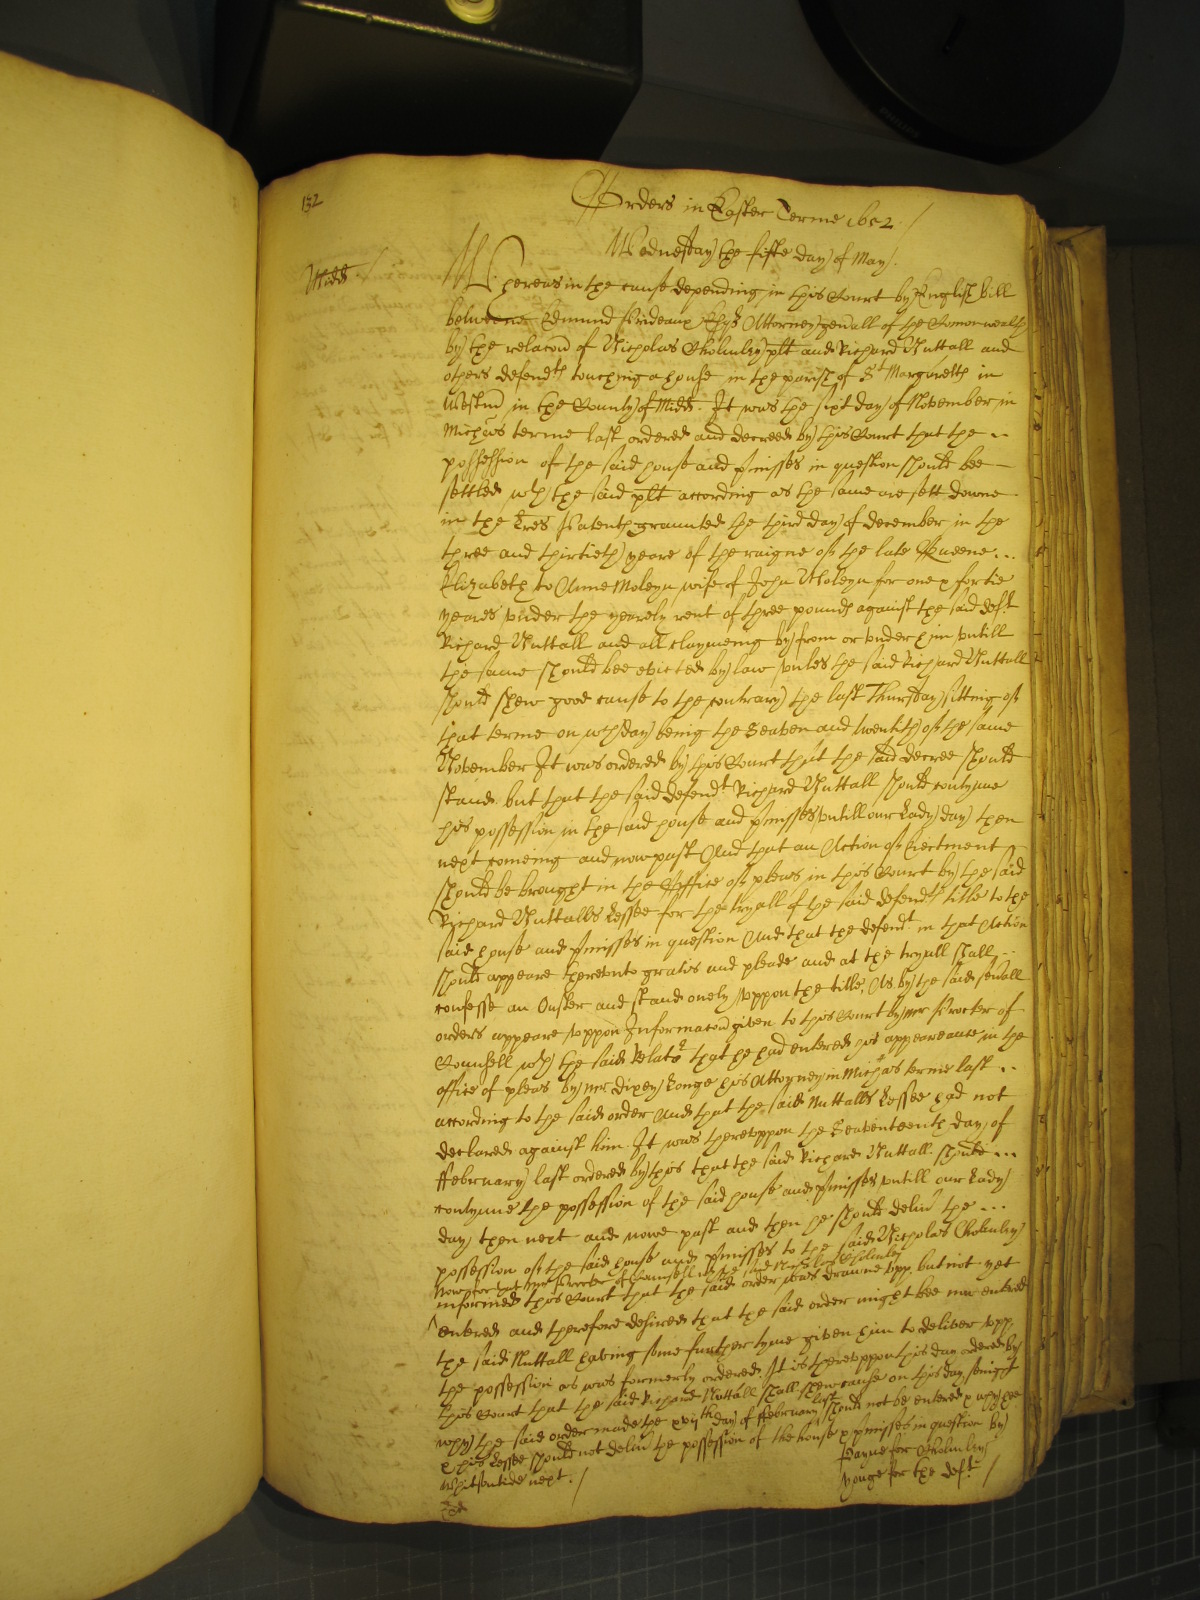 132
Orders in Easter Terme 1652
Wednesday the fifte day of May.
Midd
Whereas in the cause depending in this Court by English Bill
betweene Edmund Prideaux Esqr Attorney genall of the Comonwealth
by the relacon of Nicholas Cholmley plt and Richard Nuttall and
others defendts touching a house in the parish of St Margaretts in
Westmr in the County of Midd. It was the sixt day of November in
Michas terme last ordered and decreed by this Court that the
possession of the said house and pmisses in question should bee
settled wth the said plt according as the same are sett downe
in the Lres Patents graunted the third day of December in the
three and thirtieth yeare of the raigne of the late Queene
Elizabeth to Anne Moleyn wife of John Moleyn for one & fortie
yeares under the yearely rent of three pounds against the said deft
Richard Nuttall and all claymeing by from or under him untill
the same should bee evicted by law unles the said Richard Nuttall
should shew good cause to the contrary the last Thursday sitting of
that terme on wch day being the Seaven and twentith of the same
November It was ordered by this Court that the said decree should
stand but that the said defendt Richard Nuttall should contynue
his possession in the said house and pmisses untill our Lady day then
next comeing and now past And that an Action of Eiectment
should be brought in the Office of pleas in this Court by the said
Richard Nuttalls Lessee for the tryall of the said defendts title to the
said house and pmisses in question And that the defendt in that Action
should appeare thereunto gratis and pleade and at the tryall shall
confesse an Ouster and stand onely uppon the title, As by the said sevall
orders appeare Uppon Informacon given to this Court by mr Procter of
Counsell wth the said Relator that he had entered his appeareance in the
office of pleas by mr Dixey Longe his Attorney in Michas terme last
according to the said order And that the said Nuttalls Lessee had not
declared against him. It was thereuppon the Seaventeenth day of
ffebruary last ordered by this that the said Richard Nuttall should
contynue the possession of the said house and pmisses untill our Lady
day then next and nowe past and then he should deliu the
possession of the said house and pmisses to the said Nicholas Cholmley
Now for that mr Procter of Counsell wth the said Nicholas Cholmley
informed this Court that the said order was drawne upp but not yet
entered and therefore desired that the said order might bee now entred
the said Nuttall having some further tyme given him to deliver upp
the possession as was formerly ordered. It is thereuppon this day ordered by
this Court that the said Richard Nuttall shall shew cause on this day senight
why the said order made the xviith day of ffebruary last should not be entered & why hee
& his Lessee should not deliu the possession of the house & pmisses in question by
Whitsontide next.
Payne for Cholmley
Yonge for the deft